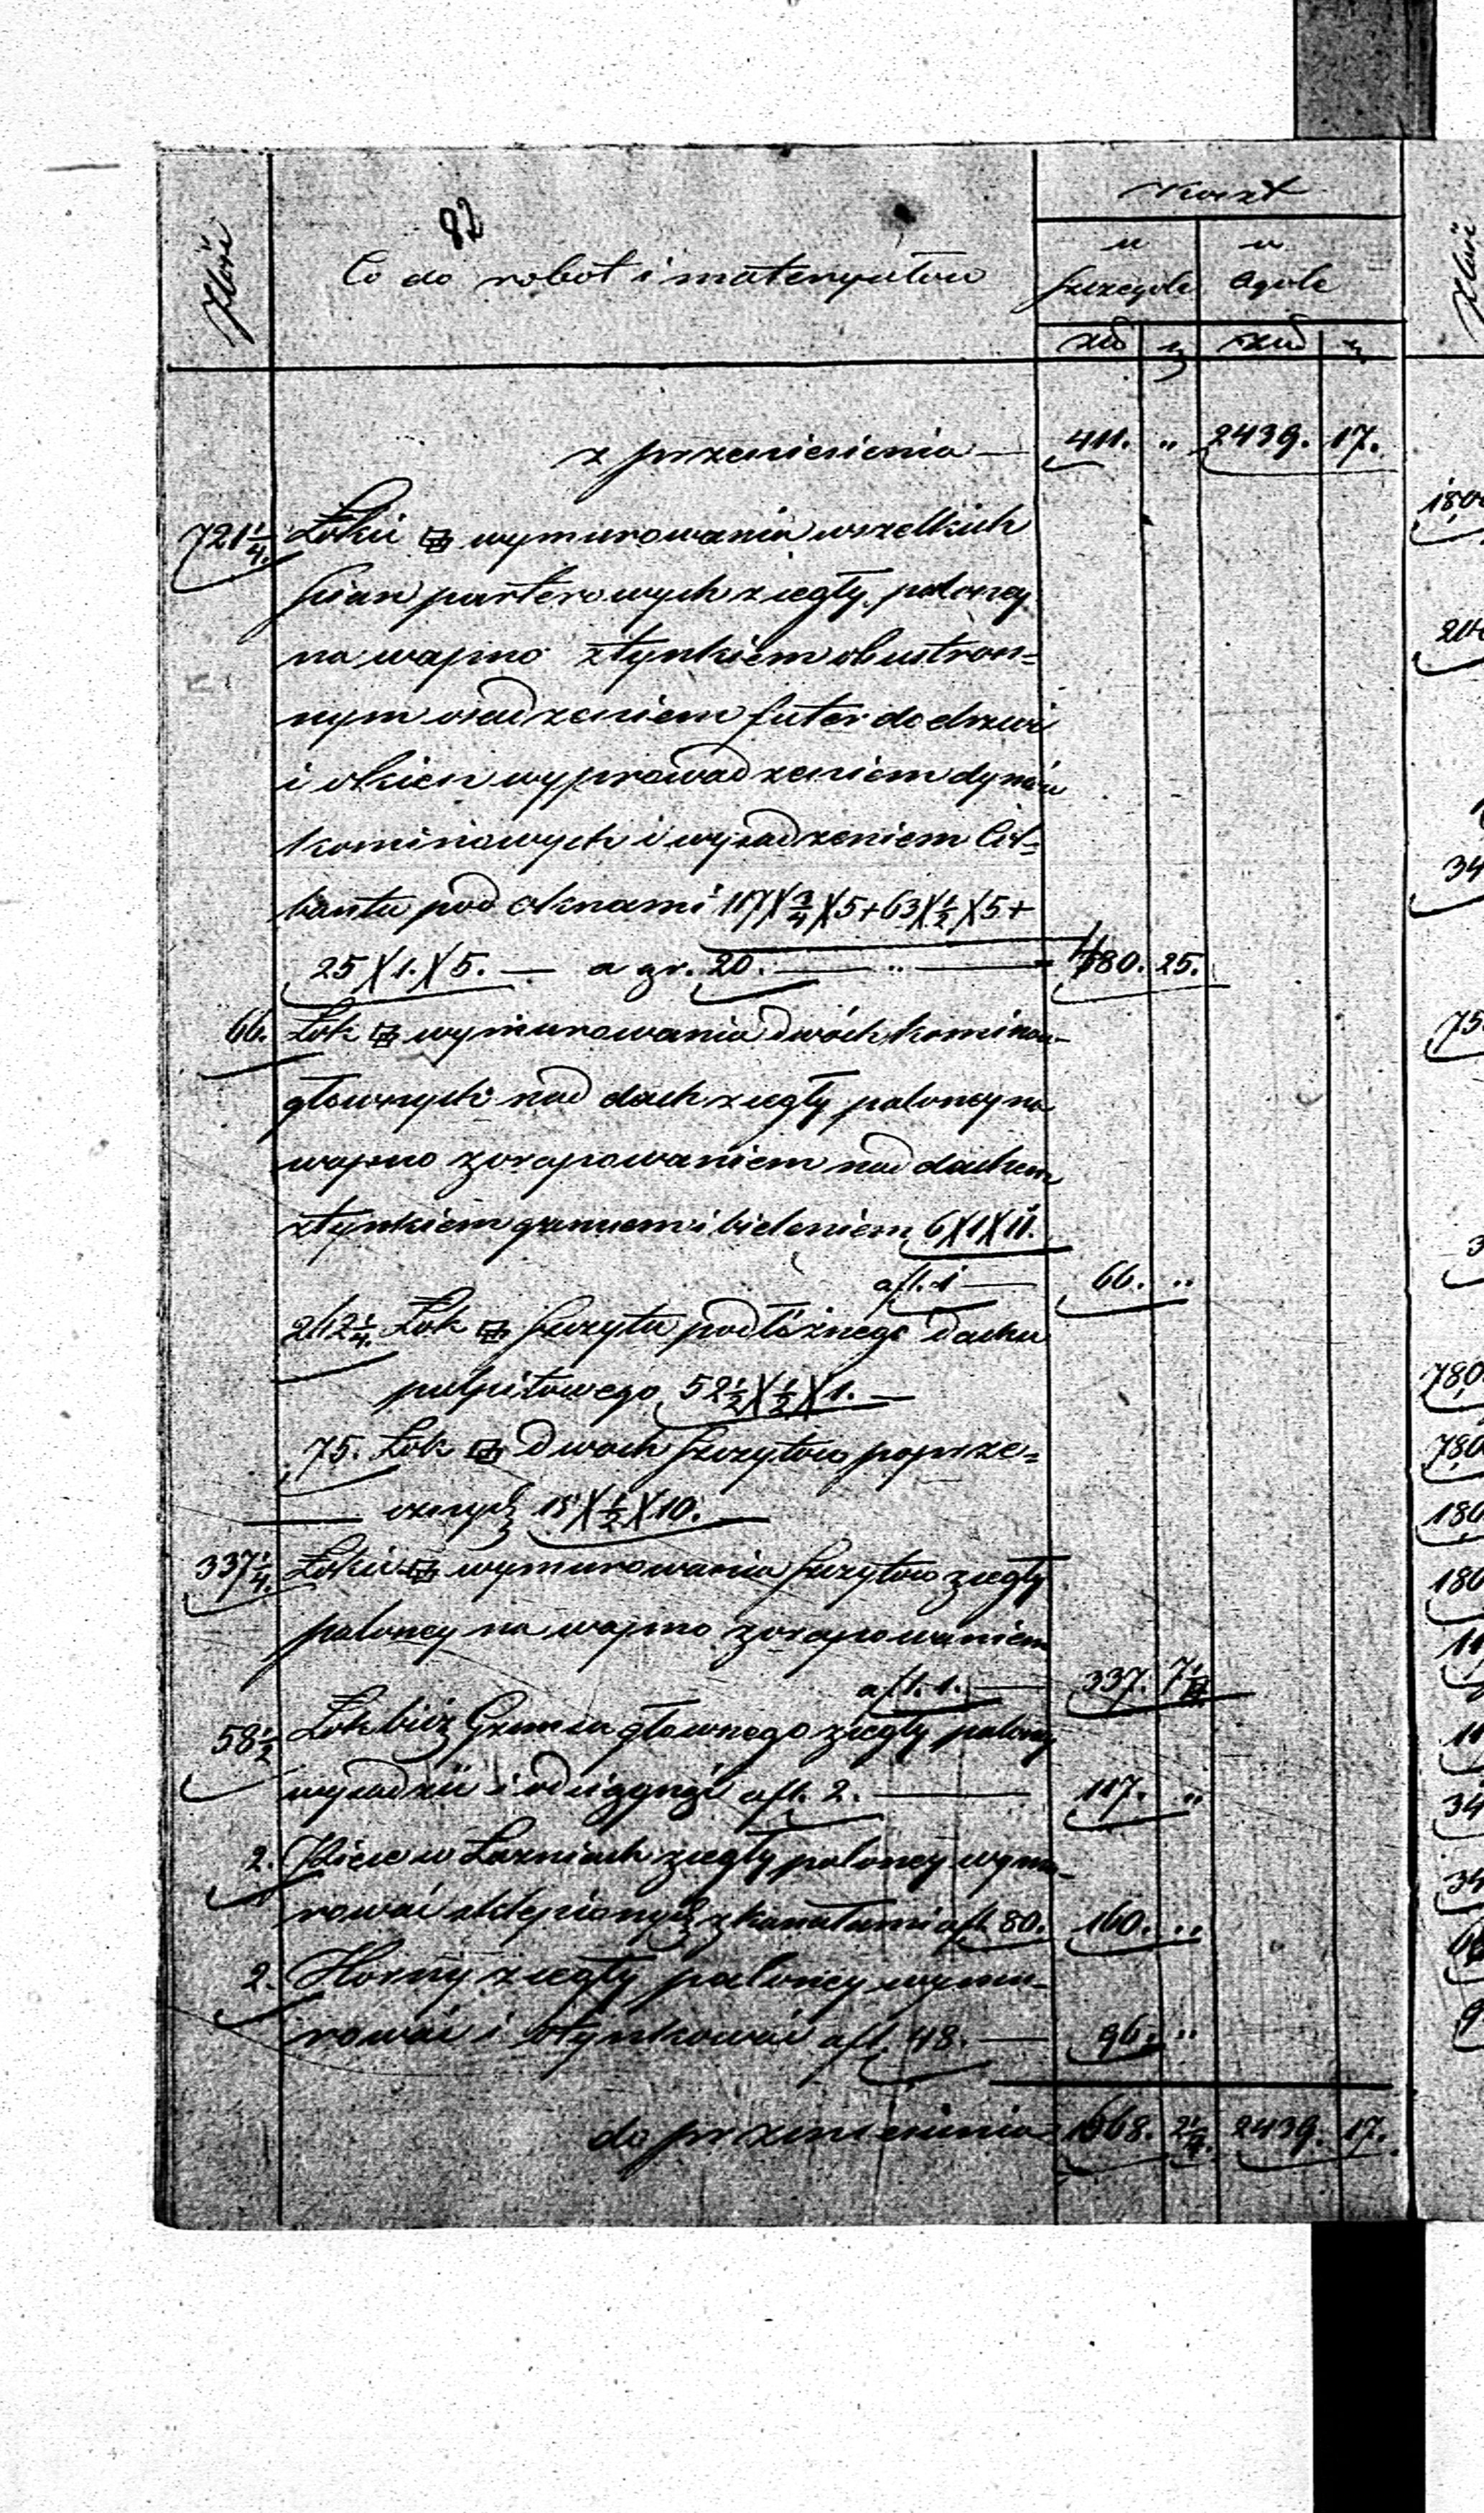 82
Ilość
Co do robot i materyałow
Koszt
w Szczegole
w Ogole
złt
gr
złt
gr
z przeniesienia — 411. „ 2439. 17.
721 1/4. Łokci wymurowania wszelkich
scian parterowych z cegły paloney
na wapno z tynkiem obustron=
nym osadzeniem futer do drzwi
i okien wyprowadzeniem dymów
kominowych i wysadzeniem
pod oknami 117 X 3/4 X 5 + 63 X 1/2 X 5 +
25 X 1. X 5. — a gr. 20. — „ — 480. 25.
66. Łok wymurowania dwóch kominow
głownych nad dach z cegły paloney na
wapno z orapowaniem nad dachem
z tynkiem gzemsem i bieleniem 6 X 1 X 11.
a fl. 1 — 66. „
262 1/4. Łok Szczytu podłóżnego dachu
pulpitowego 52 1/2 X 1/2 X 1. —
75. Łok dwoch Szczytow poprze=
cznych 15 X 1/2 X 10. —
337 1/4. Łokci wymurowania Szczytow z cegły
paloney na wapno z orapowaniem
a fl. 1. — 337. 7 1/2
58 1/2 Łok bież Gzemsu głownego z cegły paloney
wysadzić i odciągnąć a fl. 2. — 117. „
2. Piece w Łazniach z cegły paloney wymu-
rować sklepionych z kanałami a fl. 80. 160. „
2. Horny z cegły paloney wymu-
rować i otynkować a fl. 48. — 96. „
do przeniesienia 1668. 2 1/4. 2439. 17.